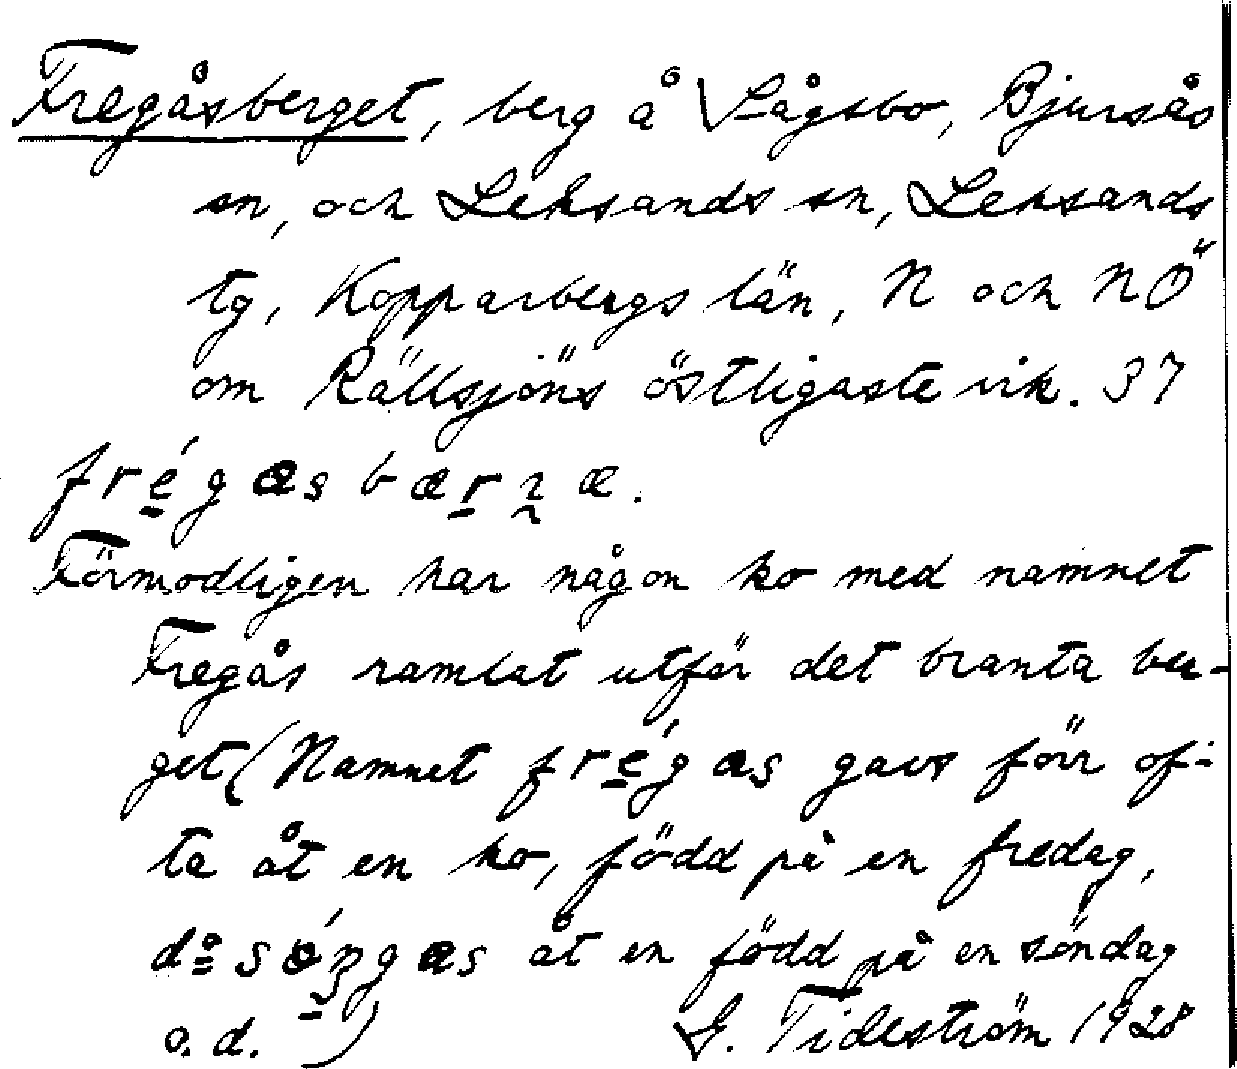 Fregåsberget, berg å Lågsbo, Bjursås
sn, och Leksands sn, Leksands
tg, Kopparbergs län, N och NÖ
om Rällsjöns östligaste vik. 37
frégæsbær
Förmodligen har någon ko med namnet
Fregås ramlat utför det branta ber-
get (Namnet frégæs gavs förr of-
ta åt en ko, född på en fredag,
åt en född på en söndag
o.d.) G. Tideström 1928